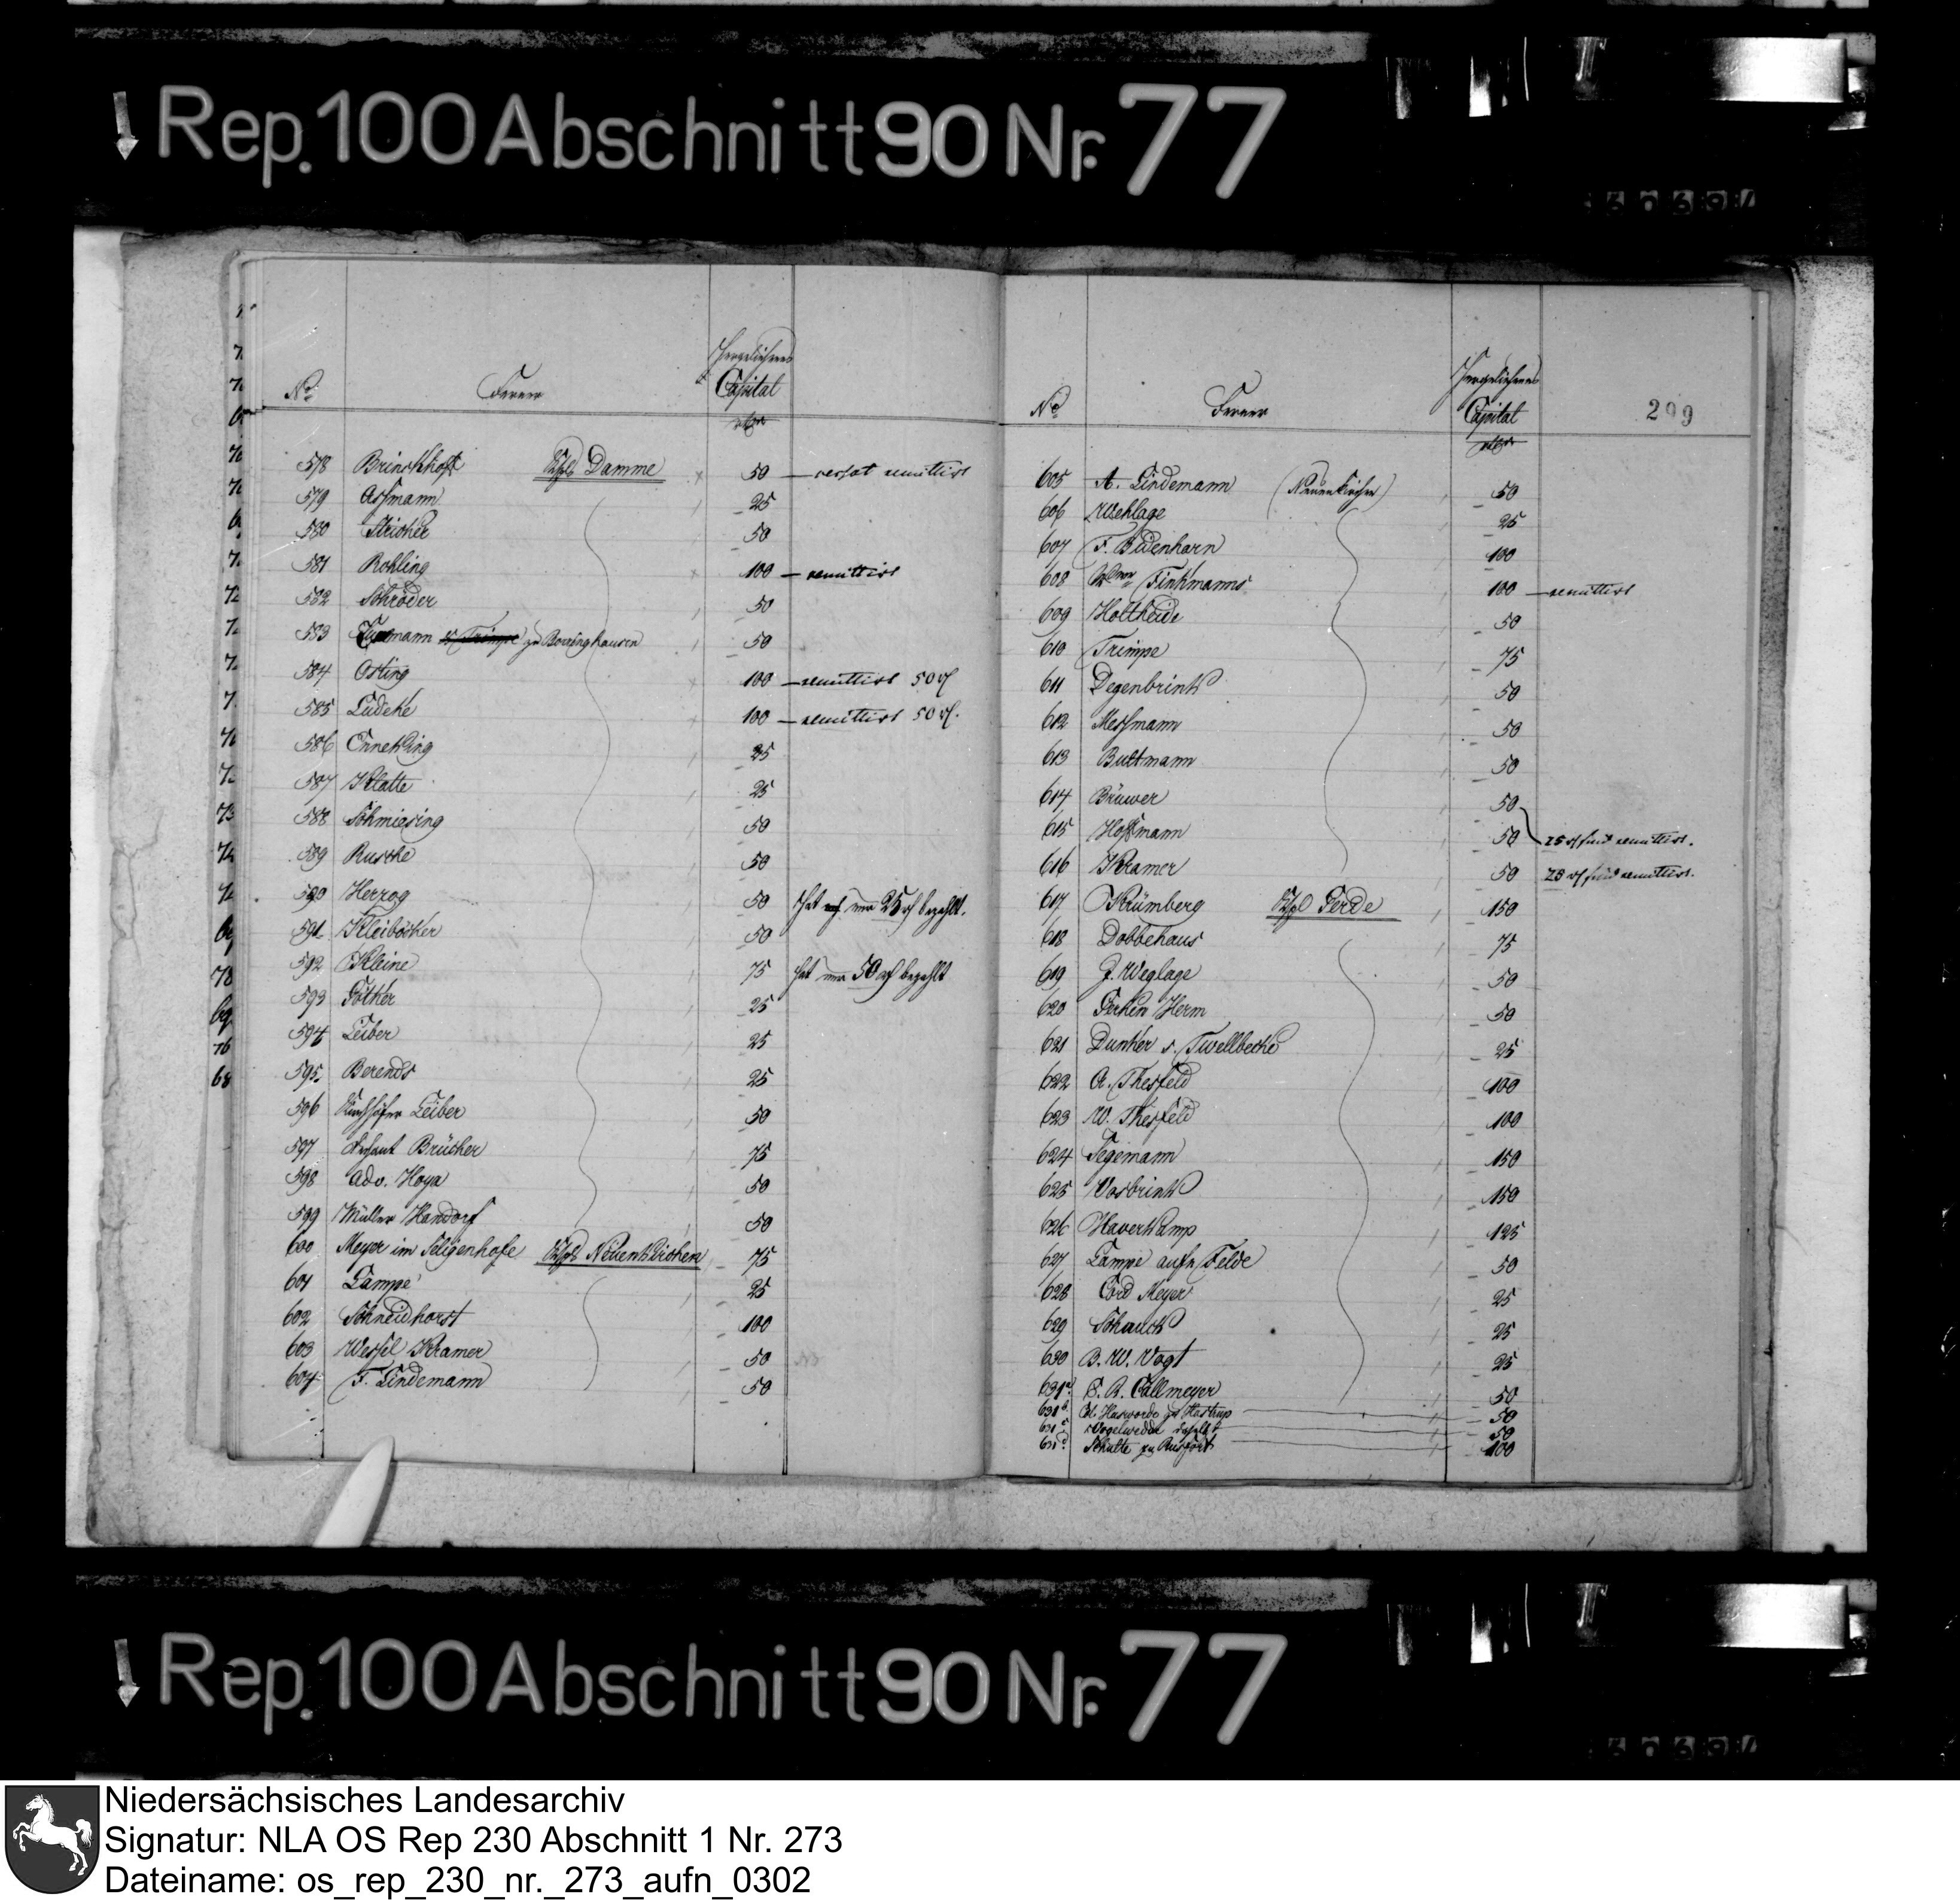 Rep. 100 Abschnitt 90 Nr. 77
No Ferner Hergeliehenes Capital rthlr
578 Brinckhoff Kspl Damme 50 — remittirt
579 Assmann 25
580 Stricker 50
581 Rohling 100 — remittirt
582 Schröder 50
583 zu Borringhausen 50
584 Osting 100 — remittirt 50
585 Lüdeke 100 — remittirt 50
586 Enneking 25
587 Klatte 25
588 Schmiesing 50
589 Rusche 50
590 Herzog 50 hat nur 25 bezahlt.
591 Kleiböcker 50
592 Kleine 75 hat nur 50 bezahlt
593 Föcker 25
594 Leiber 25
595. Berends 25
596 Kirchhöfer Leiber 50
597 Brücher 75
598 Adv. Hoya 50
599 Müller Handorf 50
600 Meyer im Seligenhofe Kspl Neuenkirchen 75
601 Lampe 25
602 Schneidhorst 100
603 Wessel Kramer 50
604 F. Lindemann 50
No Ferner Hergeliehenes Capital rthlr
299
605 A. Lindemann (Neuenkirchen) 50
606 Wehlage 25
607 F. Bidenharn 100
608 Finkmanns 100 — remittirt
609 Holtheide 50
610 Trimpe 75
611 Degenbrink 50
612 Messmann 50
613 Bultmann 50
614 Brüwer 50
615 Hoffmann 50 25 sind remittirt.
616 Kramer 50 25 sind remittirt.
617 Krümberg Kspl Ferde 150
618 Dobbehaus 75
619 J. Weglage 50
620 Gerken Herm 50
621 Dunker v. Twellbecke 25
622 A. Thesfeld 100
623 W. Thesfeld 100
624 Segemann 150
625 Vosbrink 150
626 Haverkamp 125
627 Lampe aufn Felde 50
628 Cord Meyer 25
629 Schauck 25
630 B. W. Vogt 25
631a. C. R. Callmeyer 50
631b. zu Hastrup 50
631c Vogelwedde 50
631d. Schulte zu Rüsfort 100
Rep. 100 Abschnitt 90 Nr. 77
Niedersächsisches Landesarchiv
Signatur: NLA OS Rep 230 Abschnitt 1 Nr. 273
Dateiname: os_rep_230_nr._273_aufn_0302